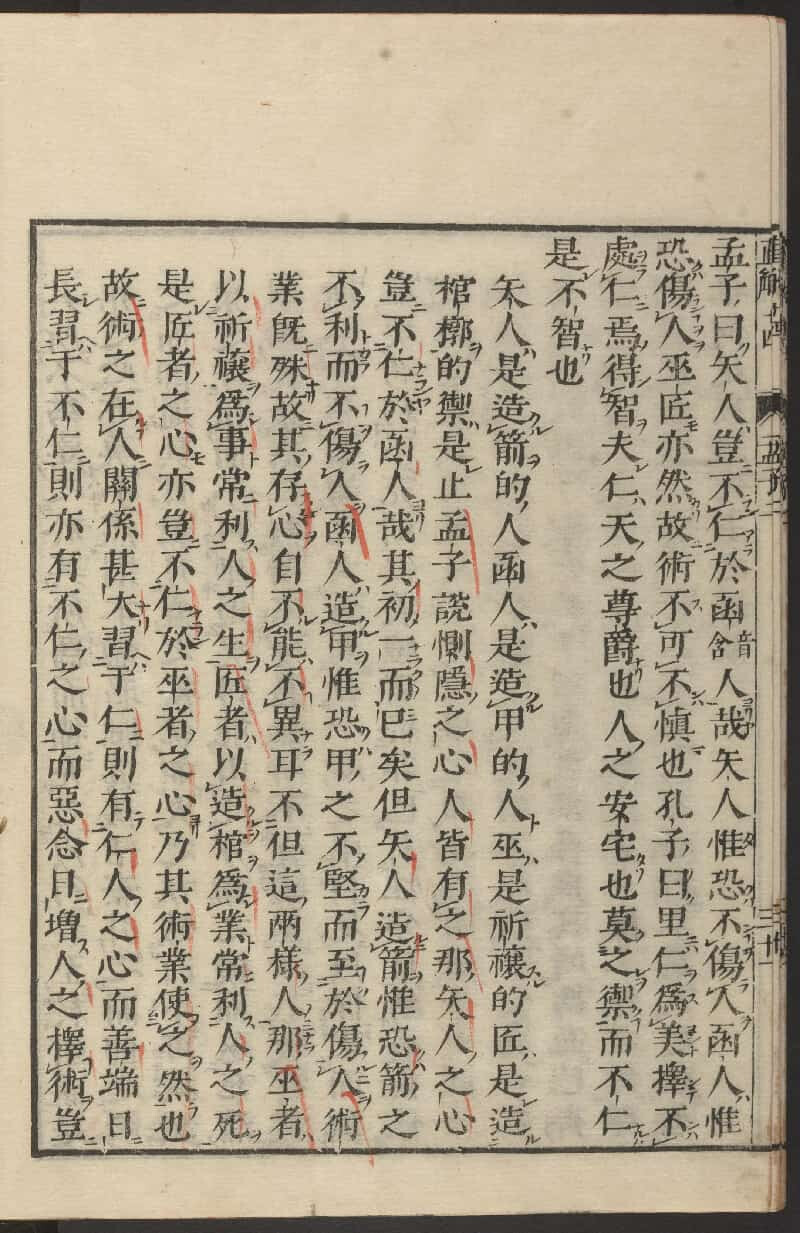 孟子曰矢人豈不仁於函音含人哉矢人惟恐不傷人函人惟
恐傷人巫匠亦然故術不可不慎也孔子曰里仁爲美擇不
處仁焉得智夫仁天之尊爵也人之安宅也莫之禦而不仁
是不智也
矢人是造箭的人函人是造甲的人巫是祈禳的匠是造
棺槨的禦是止孟子說惻隱之心人皆有之那矢人之心
豈不仁於函人哉其初一而已矣但矢人造箭惟恐箭之
不利而不傷人函人造甲惟恐甲之不堅而至於傷人術
業旣殊故其存心自不能不異耳不但這兩樣人那巫者
以祈禳爲事常利人之生匠者以造棺爲業常利人之死
是匠者之心亦豈不仁於巫者之心乃其術業使之然也
故術之在人關係甚大習于仁則有仁人之心而善端日
長習于不仁則亦有不仁之心而惡念日增人之擇術豈